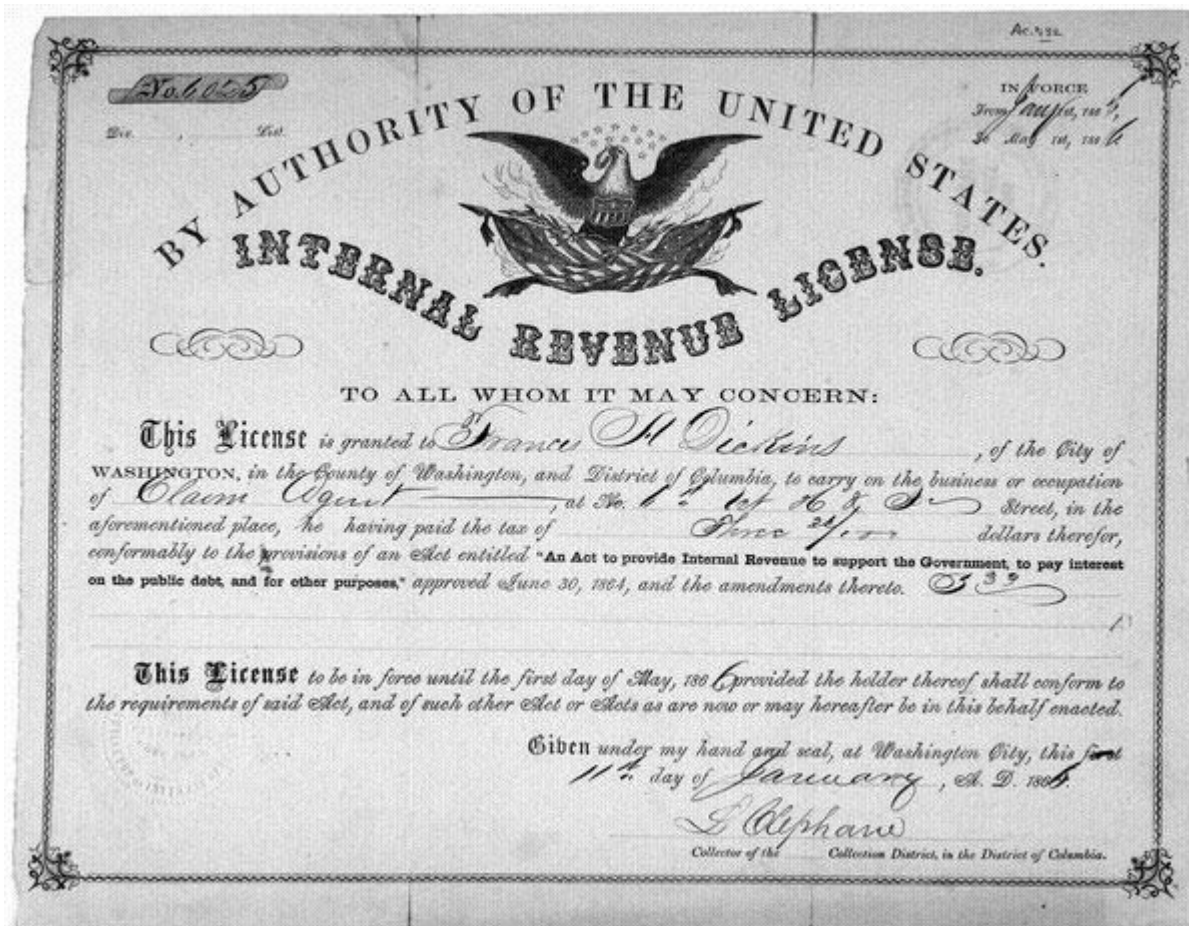 Ac. 932
No. 6025
Div. , Dist.
IN FORCE
From Jany 1st, 1865,
To May 1st, 1866
BY AUTHORITY OF THE UNITED STATES.
INTERNAL REVENUE LICENSE.
TO ALL WHOM IT MAY CONCERN:
This License is granted to Frances H Dickins , of the City of
WASHINGTON, in the County of Washington, and District of Columbia, to carry on the business or occupation
of Claim Agent , at No. Street, in the
aforementioned place, he having paid the tax of Three dollars therefor,
conformably to the provisions of an Act entitled "An Act to provide Internal Revenue to support the Government, to pay interest
on the public debt, and for other purposes," approved June 30, 1864, and the amendments thereto.
This License to be in force until the first day of May, 1866 provided the holder thereof shall conform to
the requirements of said Act, and of such other Act or Acts as are now or may hereafter be in this behalf enacted.
Given under my hand and seal, at Washington City, this first
11th day of January , A. D. 186
L Clephane
Collector of the Collection District, in the District of Columbia.